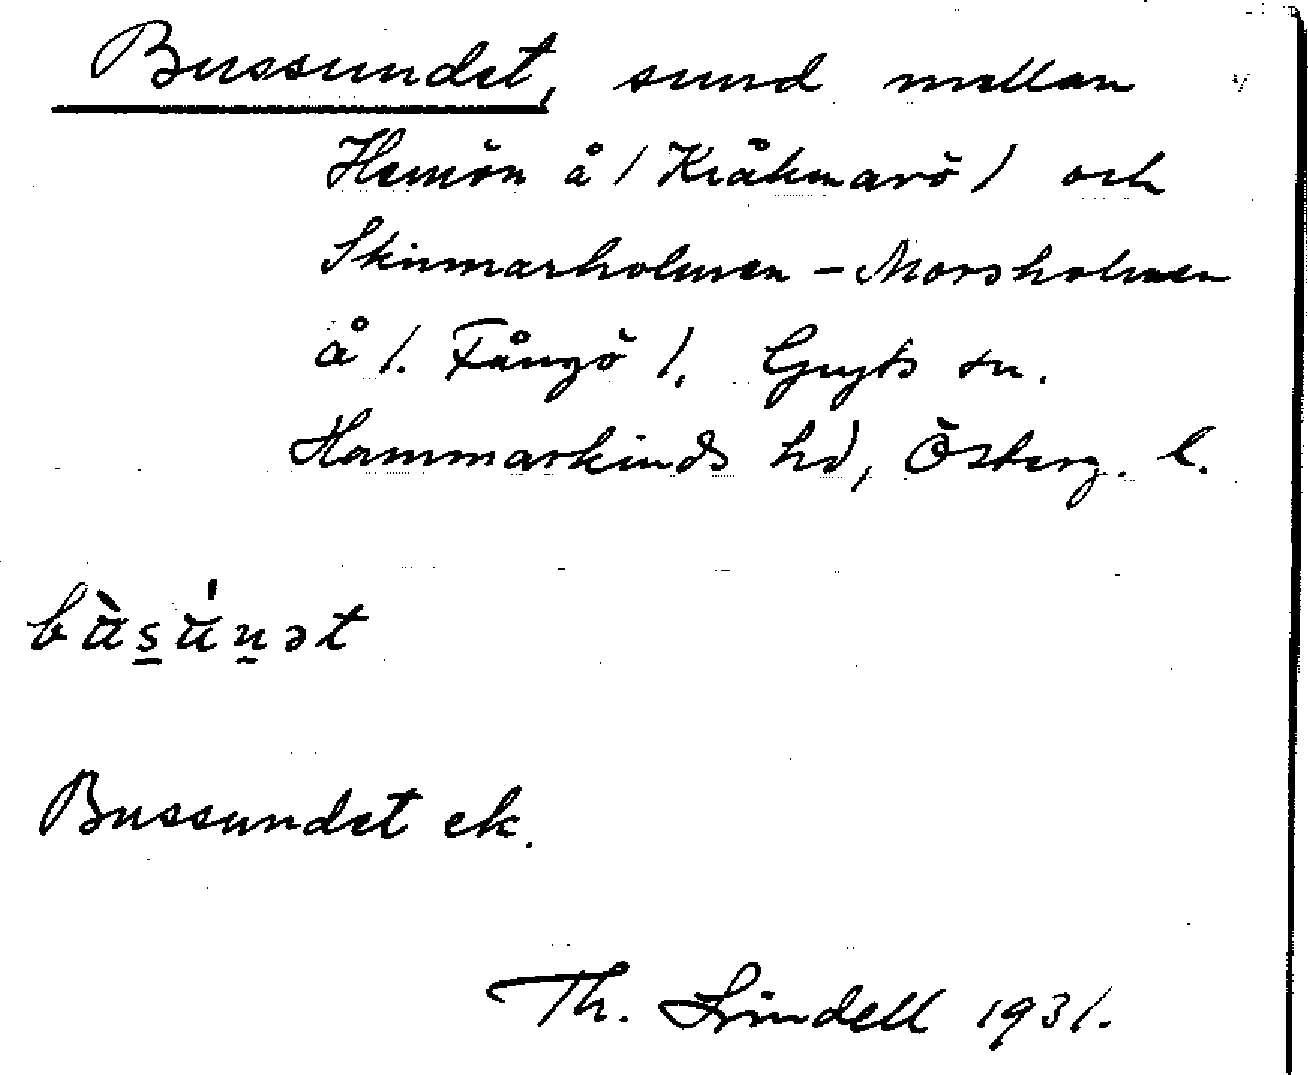 Bussundet, sund mellan
Hemön å / Kråkmarö / och
Skinnarholmen - Morsholmen
å /. Fångö /, Gryts sn.
Hammarkinds hd, Österg. l.
bùs̠ún̠ət
Bussundet ek.
Th. Lindell 1931.